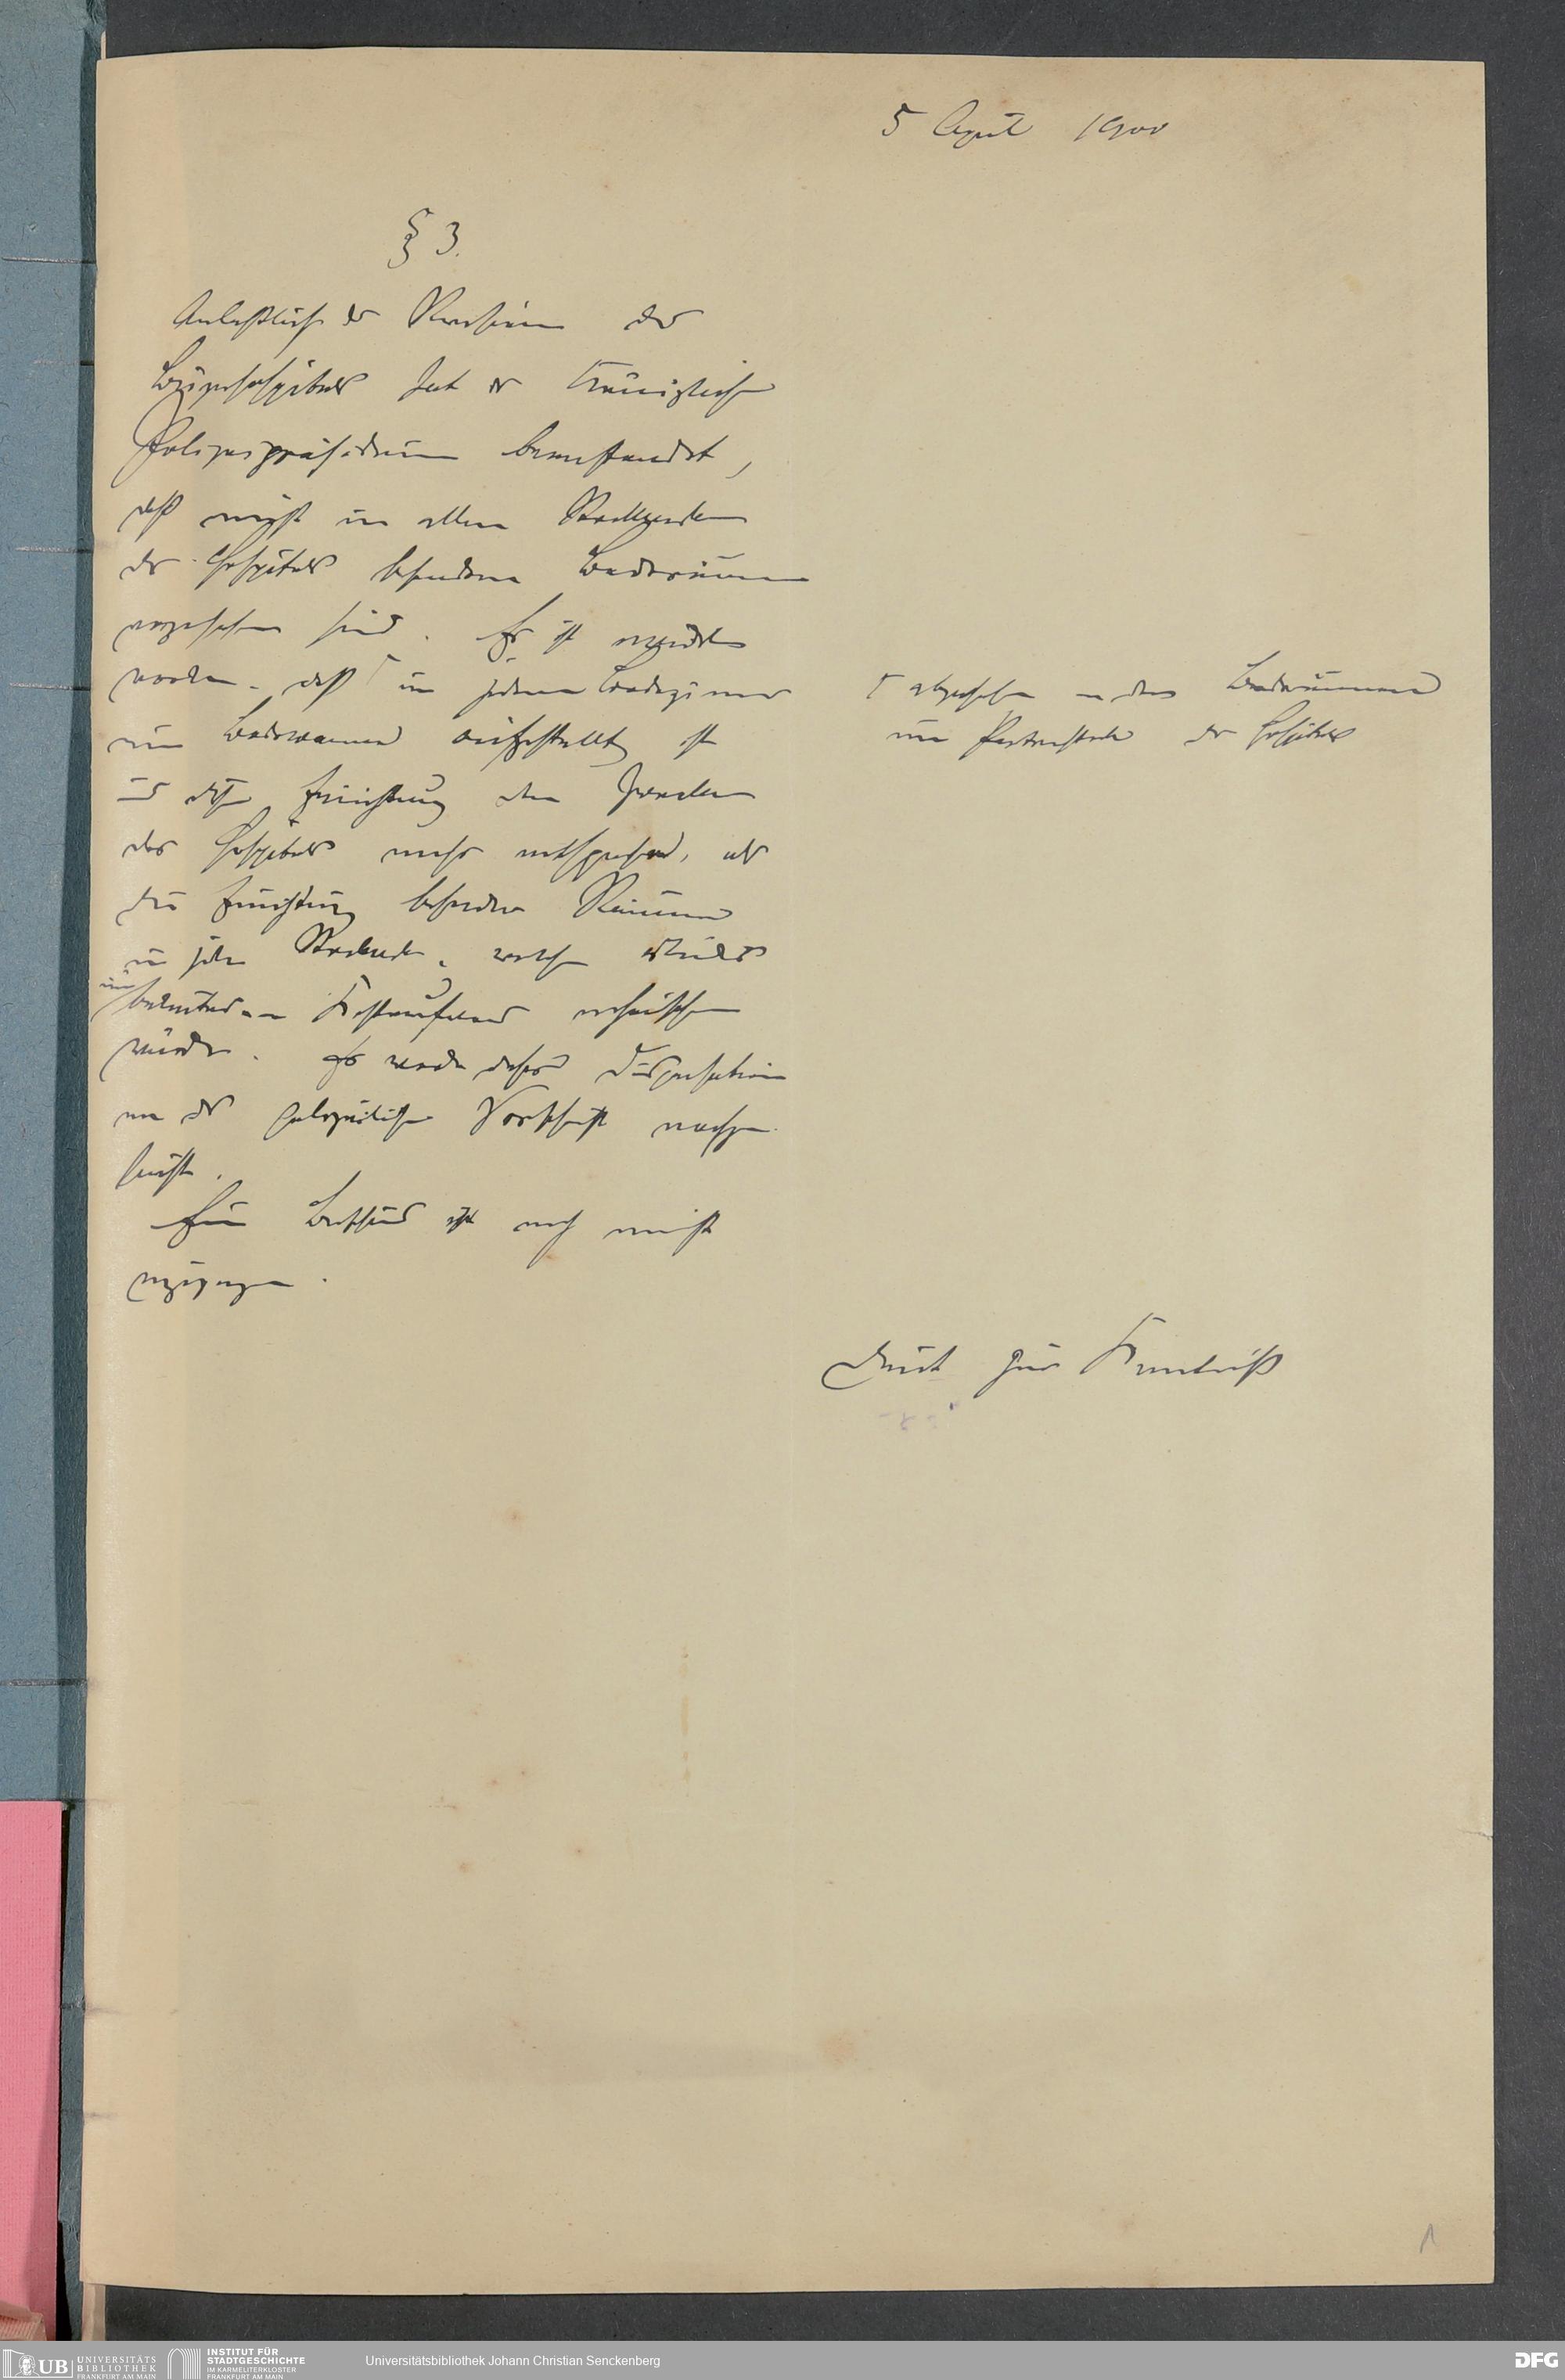 5 April 1900
§ 3.
Anlaßlich der Revision des
Bürgerhospitals hat das Königliche
Polizeipräsidium beanstandet,
daß nicht in allen Stockwerken
des Hospitals besondere Baderäume
vorgesehen sind. Es ist erwidert
worden, daß ⌈ in jedem Badezimmer
eine Badewanne aufgestellt ist
und diese Einrichtung den Zwecken
des Hospitals mehr entspreche, als
die Einrichtung besonderer Räume
in jedem Stockwerk, welche
einen bedeutenden Kostenaufwand verursachen
würde. Es werde daher Dispensation
von der polizeilichen Vorschrift nachge-
sucht.
Ein Bescheid ist noch nicht
eingegangen.
⌈ abgesehen von den Baderäumen
im Hospitals
dient zur Kenntniß
1
UB UNIVERSITÄTS
BIBLIOTHEK
FRANKFURT AM MAIN
INSTITUT FÜR
STADTGESCHICHTE
IM KARMELITERKLOSTER
FRANKFURT AM MAIN
Universitätsbibliothek Johann Christian Senckenberg
DFG